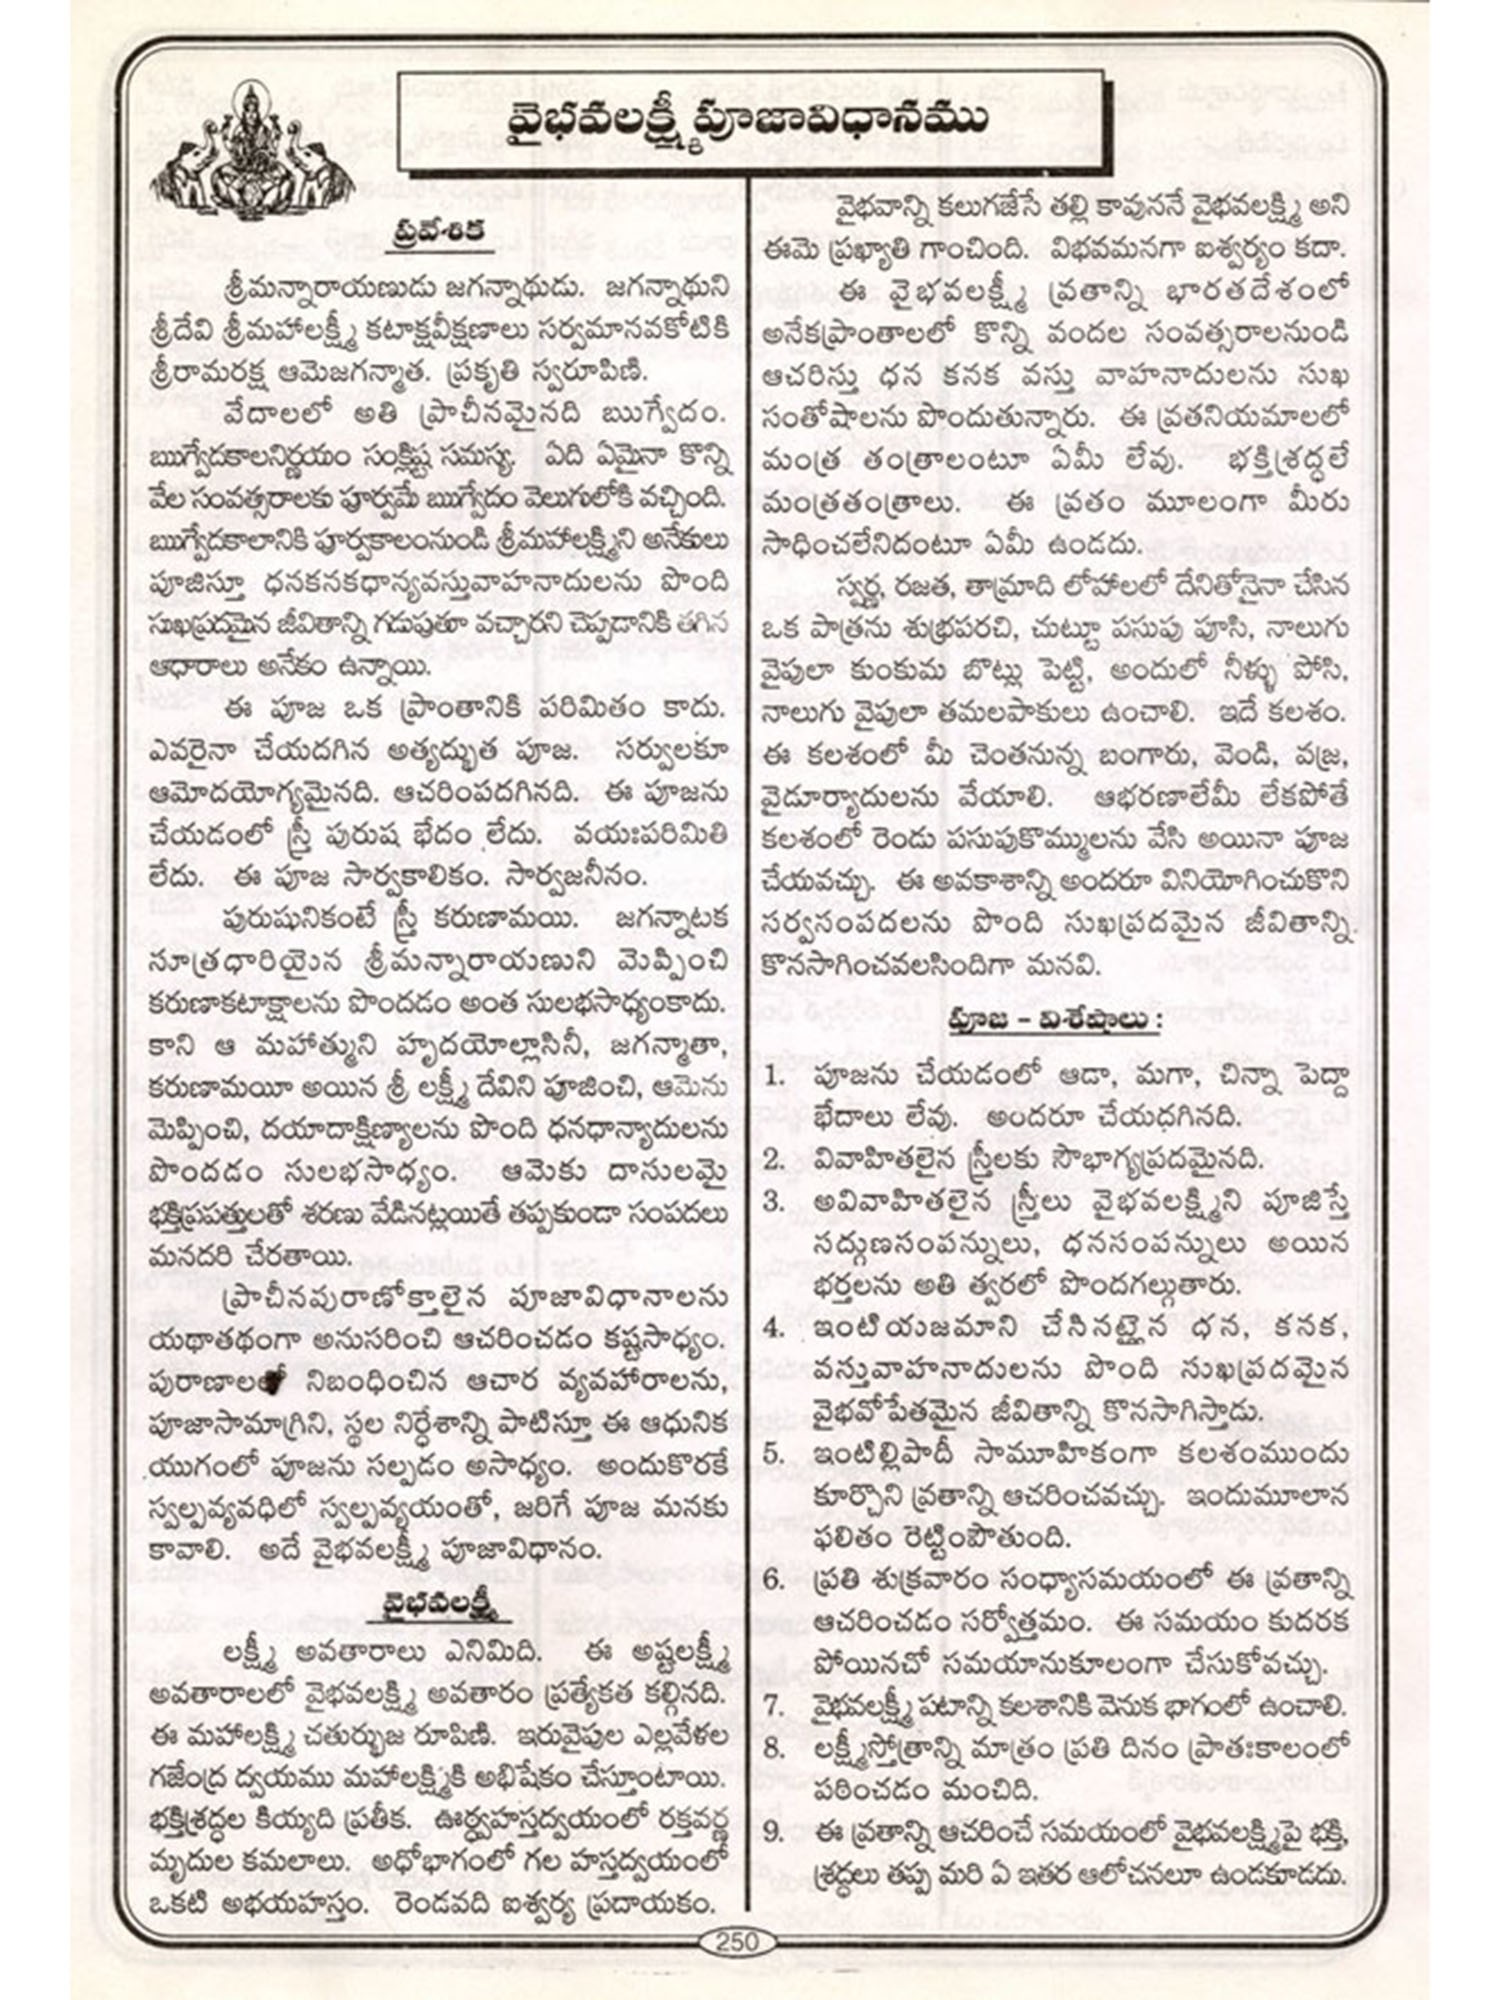 వైభవలక్ష్మీ పూజావిధానము
ప్రవేశిక
శ్రీమన్నారాయణుడు జగన్నాథుడు. జగన్నాథుని
శ్రీదేవి శ్రీమహాలక్ష్మీ కటాక్షవీక్షణాలు సర్వమానవకోటికి
శ్రీరామరక్ష ఆమెజగన్మాత. ప్రకృతి స్వరూపిణి.
వేదాలలో అతి ప్రాచీనమైనది ఋగ్వేదం.
ఋగ్వేదకాలనిర్ణయం సంక్లిష్ట సమస్య. ఏది ఏమైనా కొన్ని
వేల సంవత్సరాలకు పూర్వమే ఋగ్వేదం వెలుగులోకి వచ్చింది.
ఋగ్వేదకాలానికి పూర్వకాలంనుండి శ్రీమహాలక్ష్మిని అనేకులు
పూజిస్తూ ధనకనకధాన్యవస్తువాహనాదులను పొంది
సుఖప్రదమైన జీవితాన్ని గడుపుతూ వచ్చారని చెప్పడానికి తగిన
ఆధారాలు అనేకం ఉన్నాయి.
ఈ పూజ ఒక ప్రాంతానికి పరిమితం కాదు.
ఎవరైనా చేయదగిన అత్యద్భుత పూజ. సర్వులకూ
ఆమోదయోగ్యమైనది. ఆచరింపదగినది. ఈ పూజను
చేయడంలో స్త్రీ పురుష భేదం లేదు. వయఃపరిమితి
లేదు. ఈ పూజ సార్వకాలికం. సార్వజనీనం.
పురుషునికంటే స్త్రీ కరుణామయి. జగన్నాటక
సూత్రధారియైన శ్రీమన్నారాయణుని మెప్పించి
కరుణాకటాక్షాలను పొందడం అంత సులభసాధ్యంకాదు.
కాని ఆ మహాత్ముని హృదయోల్లాసినీ, జగన్మాతా,
కరుణామయీ అయిన శ్రీ లక్ష్మీ దేవిని పూజించి, ఆమెను
మెప్పించి, దయాదాక్షిణ్యాలను పొంది ధనధాన్యాదులను
పొందడం సులభసాధ్యం. ఆమెకు దాసులమై
భక్తిప్రపత్తులతో శరణు వేడినట్లయితే తప్పకుండా సంపదలు
మనదరి చేరతాయి.
ప్రాచీనపురాణోక్తాలైన పూజావిధానాలను
యథాతథంగా అనుసరించి ఆచరించడం కష్టసాధ్యం.
పురాణాలలో నిబంధించిన ఆచార వ్యవహారాలను,
పూజాసామాగ్రిని, స్థల నిర్దేశాన్ని పాటిస్తూ ఈ ఆధునిక
యుగంలో పూజను సల్పడం అసాధ్యం. అందుకొరకే
స్వల్పవ్యవధిలో స్వల్పవ్యయంతో, జరిగే పూజ మనకు
కావాలి. అదే వైభవలక్ష్మీ పూజావిధానం.
వైభవలక్ష్మీ
లక్ష్మీ అవతారాలు ఎనిమిది. ఈ అష్టలక్ష్మీ
అవతారాలలో వైభవలక్ష్మి అవతారం ప్రత్యేకత కల్గినది.
ఈ మహాలక్ష్మి చతుర్భుజ రూపిణి. ఇరువైపుల ఎల్లవేళల
గజేంద్ర ద్వయము మహాలక్ష్మికి అభిషేకం చేస్తూంటాయి.
భక్తిశ్రద్ధల కియ్యది ప్రతీక. ఊర్ధ్వహస్తద్వయంలో రక్తవర్ణ
మృదుల కమలాలు. అధోభాగంలో గల హస్తద్వయంలో
ఒకటి అభయహస్తం. రెండవది ఐశ్వర్య ప్రదాయకం.
వైభవాన్ని కలుగజేసే తల్లి కావుననే వైభవలక్ష్మి అని
ఈమె ప్రఖ్యాతి గాంచింది. విభవమనగా ఐశ్వర్యం కదా.
ఈ వైభవలక్ష్మీ వ్రతాన్ని భారతదేశంలో
అనేకప్రాంతాలలో కొన్ని వందల సంవత్సరాలనుండి
ఆచరిస్తు ధన కనక వస్తు వాహనాదులను సుఖ
సంతోషాలను పొందుతున్నారు. ఈ వ్రతనియమాలలో
మంత్ర తంత్రాలంటూ ఏమీ లేవు. భక్తిశ్రద్ధలే
మంత్రతంత్రాలు. ఈ వ్రతం మూలంగా మీరు
సాధించలేనిదంటూ ఏమీ ఉండదు.
స్వర్ణ, రజత, తామ్రాది లోహాలలో దేనితోనైనా చేసిన
ఒక పాత్రను శుభ్రపరచి, చుట్టూ పసుపు పూసి, నాలుగు
వైపులా కుంకుమ బొట్లు పెట్టి, అందులో నీళ్ళు పోసి,
నాలుగు వైపులా తమలపాకులు ఉంచాలి. ఇదే కలశం.
ఈ కలశంలో మీ చెంతనున్న బంగారు, వెండి, వజ్ర,
వైడూర్యాదులను వేయాలి. ఆభరణాలేమీ లేకపోతే
కలశంలో రెండు పసుపుకొమ్ములను వేసి అయినా పూజ
చేయవచ్చు. ఈ అవకాశాన్ని అందరూ వినియోగించుకొని
సర్వసంపదలను పొంది సుఖప్రదమైన జీవితాన్ని
కొనసాగించవలసిందిగా మనవి.
పూజ - విశేషాలు :
1. పూజను చేయడంలో ఆడా, మగా, చిన్నా పెద్దా
భేదాలు లేవు. అందరూ చేయధగినది.
2. వివాహితలైన స్త్రీలకు సౌభాగ్యప్రదమైనది.
3. అవివాహితలైన స్త్రీలు వైభవలక్ష్మిని పూజిస్తే
సద్గుణసంపన్నులు, ధనసంపన్నులు అయిన
భర్తలను అతి త్వరలో పొందగల్గుతారు.
4. ఇంటియజమాని చేసినట్లైన ధన, కనక,
వస్తువాహనాదులను పొంది సుఖప్రదమైన
వైభవోపేతమైన జీవితాన్ని కొనసాగిస్తాడు.
5. ఇంటిల్లిపాదీ సామూహికంగా కలశంముందు
కూర్చొని వ్రతాన్ని ఆచరించవచ్చు. ఇందుమూలాన
ఫలితం రెట్టింపౌతుంది.
6. ప్రతి శుక్రవారం సంధ్యాసమయంలో ఈ వ్రతాన్ని
ఆచరించడం సర్వోత్తమం. ఈ సమయం కుదరక
పోయినచో సమయానుకూలంగా చేసుకోవచ్చు.
7. వైభవలక్ష్మీ పటాన్ని కలశానికి వెనుక భాగంలో ఉంచాలి.
8. లక్ష్మీస్తోత్రాన్ని మాత్రం ప్రతి దినం ప్రాతఃకాలంలో
పఠించడం మంచిది.
9. ఈ వ్రతాన్ని ఆచరించే సమయంలో వైభవలక్ష్మిపై భక్తి,
శ్రద్ధలు తప్ప మరి ఏ ఇతర ఆలోచనలూ ఉండకూడదు.
250